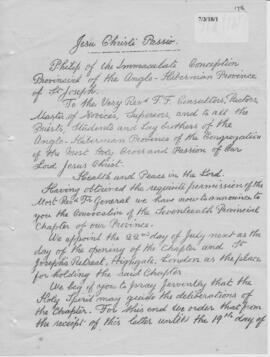 178
7/3/18/1
Jesu Christi Passio.
Philip of the Immaculate Conception
Provincial of the Anglo-Hibernian Province
of St Joseph.
To the Very Revd F.F. Consultors, Rectors,
Master of Novices, Superiors and to all the
Priests, Students and Lay brothers of the
Anglo-Hibernian Province of the Congregation
of the Most Holy Cross and Passion of Our
Lord Jesus Christ.
Health and Peace in the Lord.
Having obtained the requisite permission of the
Most Revd Fr General we have now to announce to
you the Convocation of the Seventeenth Provincial
Chapter of our Province.
We appoint the 22nd day of July next as the
day of the opening of the Chapter and St
Joseph's Retreat, Highgate, London as the place
for holding the said Chapter.
We beg of you to pray fervently that the
Holy Spirit may guide the deliberations of
the Chapter. For this end we order that from
the receipt of this letter until the 19th day of